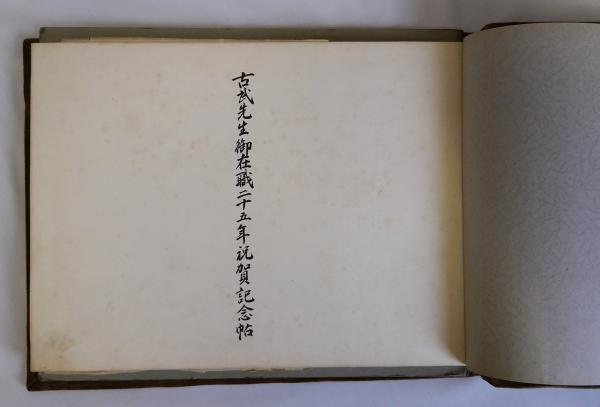 古武先生御在職二十五年祝賀記念帖